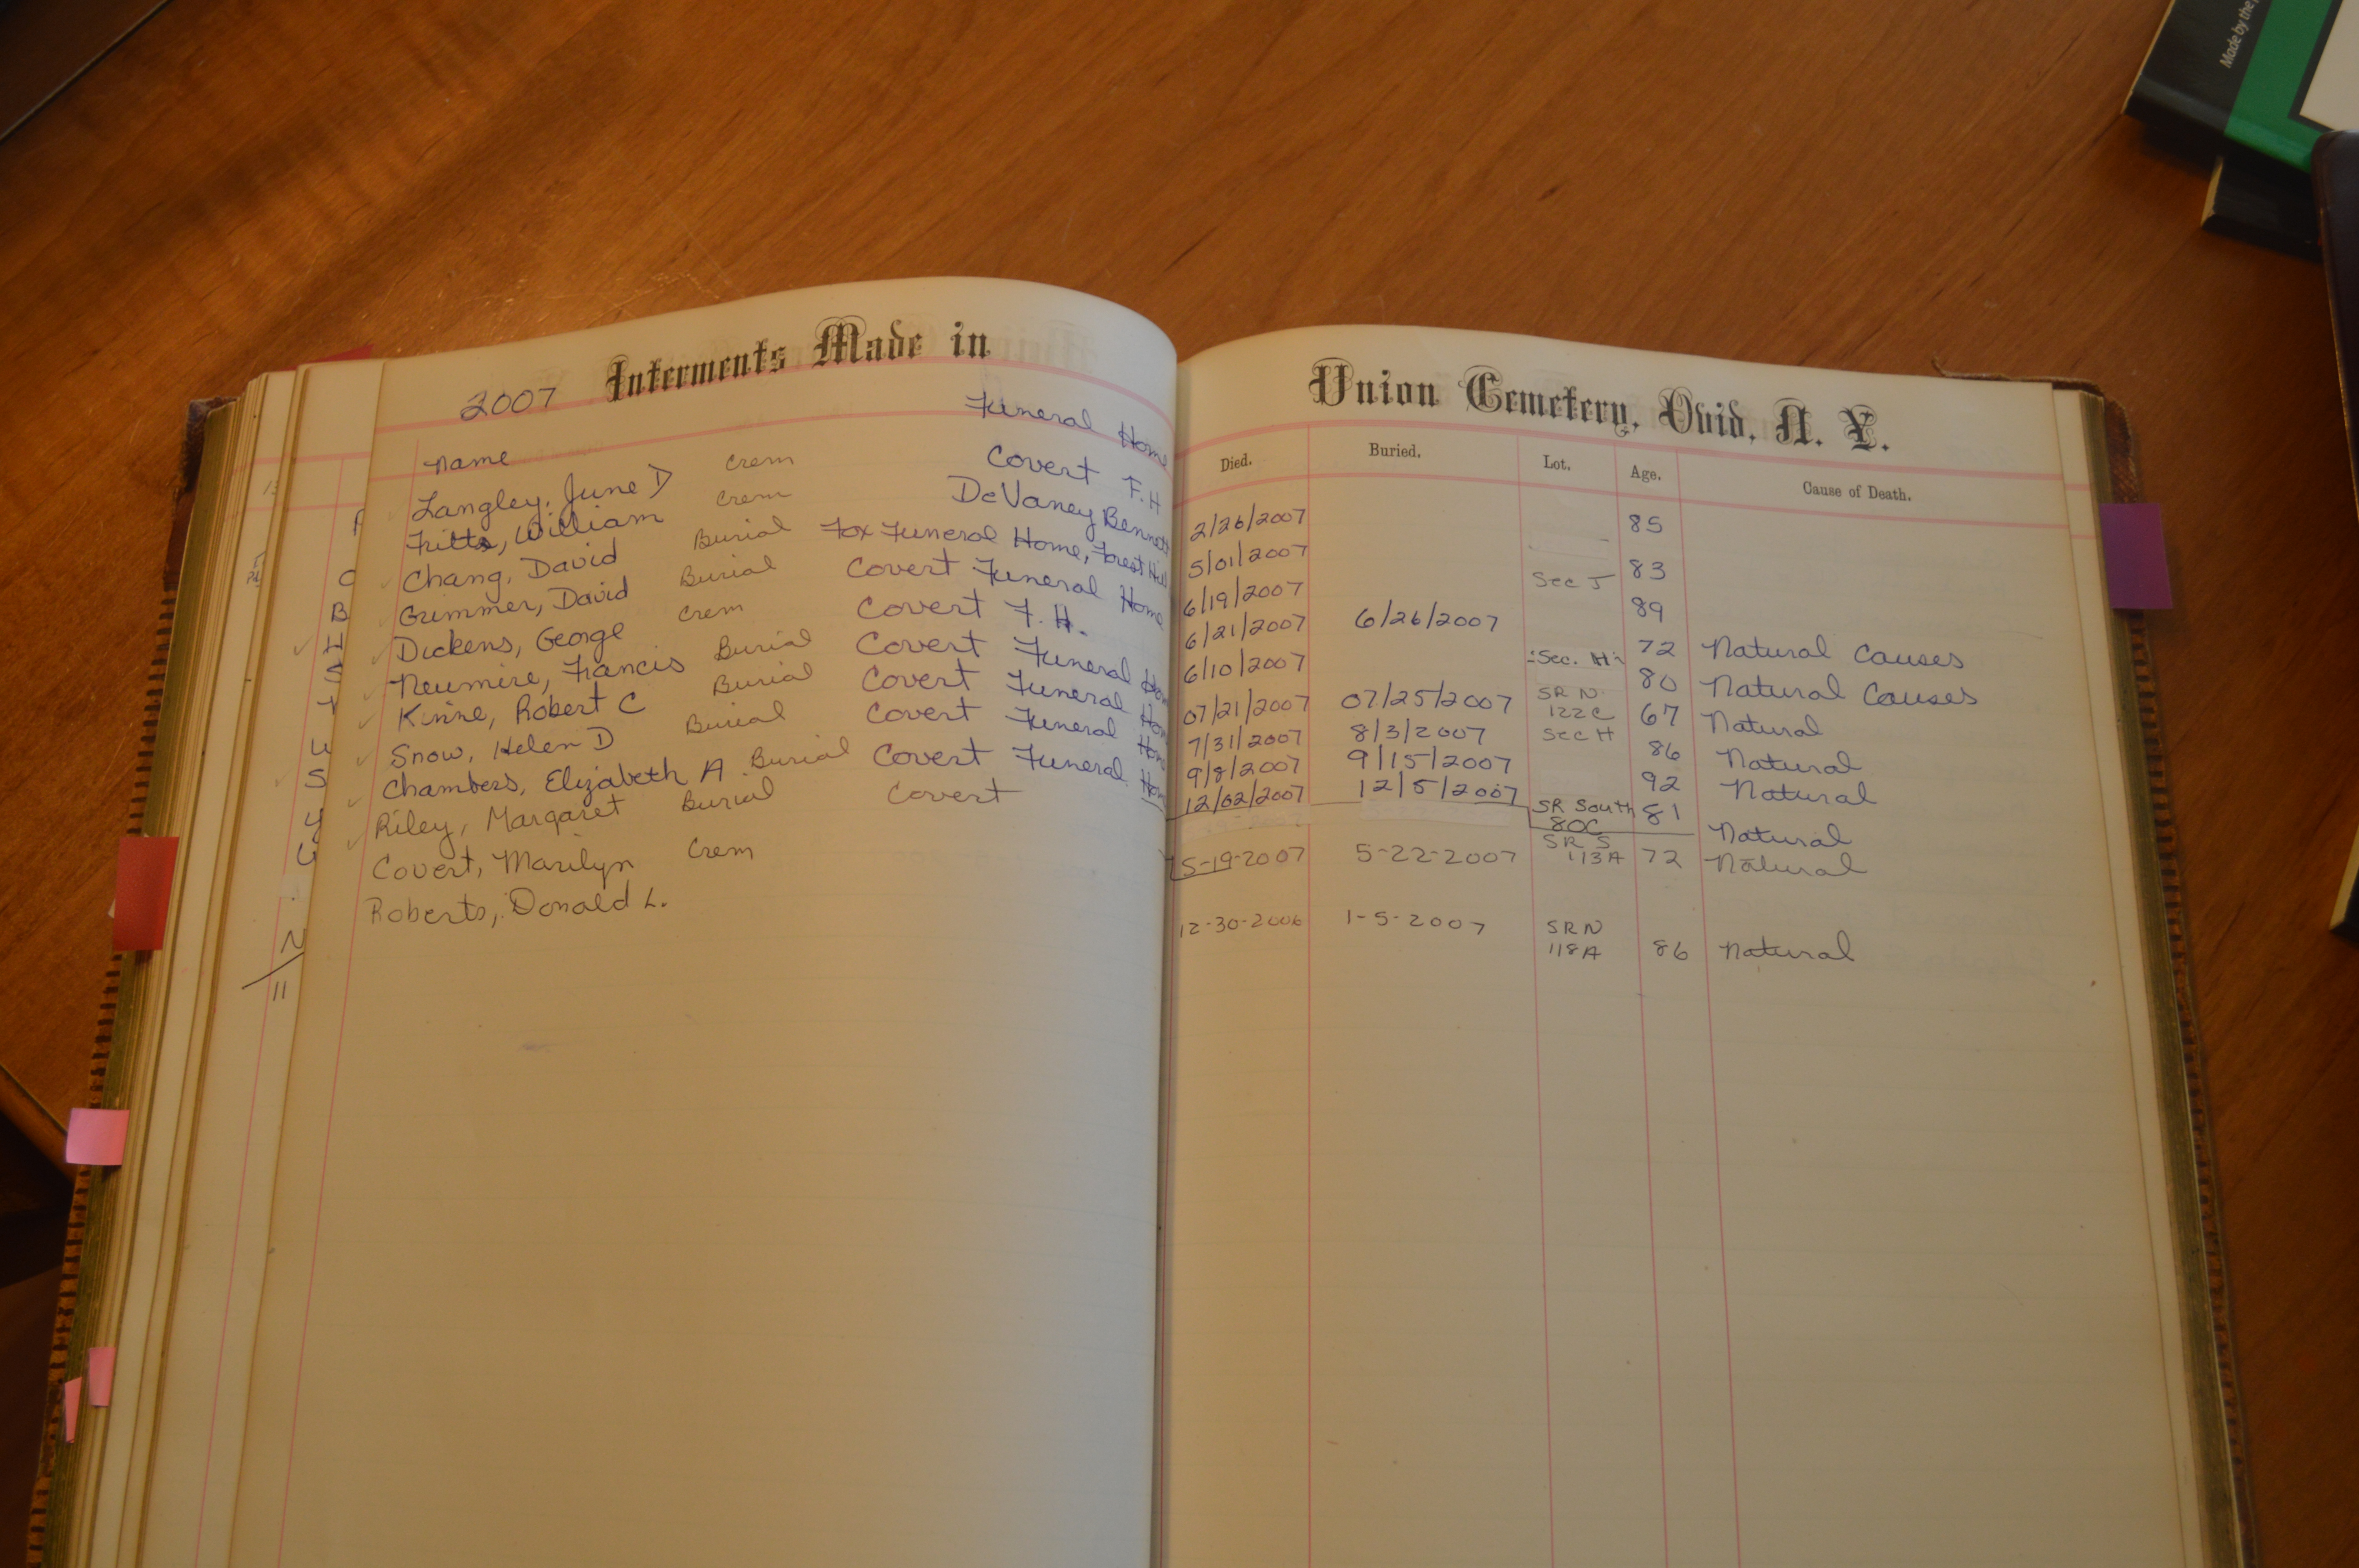 Made by the
2007 Interments Made in
Name Funeral Home
Langley, June D Crem Covert F.H
Fritts, William Crem DeVaney Bennett
Chang, David Burial Fox Funeral Home, Forest Hill
Grimmer, David Burial Covert Funeral Home
Dickens, George Crem Covert F.H.
Neumire, Francis Burial Covert Funeral Hom
Kinne, Robert C Burial Covert Funeral Hom
Snow, Helen D Burial Covert Funeral Hom
Chambers, Elizabeth A Burial Covert Funeral Hom
Riley, Margaret Burial Covert
Covert, Marilyn Crem
Roberts, Donald L.
B
S
u
S
y
11
Union Cemetery, Ovid, N. Y.
Died. Buried. Lot. Age. Cause of Death.
2/26/2007 85
5/01/2007 83
6/19/2007 Sec J 89
6/21/2007 6/26/2007 72 Natural Causes
6/10/2007 Sec. H 80 Natural Causes
07/21/2007 07/25/2007 SR N 122C 67 Natural
7/31/2007 8/3/2007 Sec H 86 Natural
9/8/2007 9/15/2007 92 Natural
12/02/2007 12/5/2007 SR South 80C 81 Natural
5-19-2007 5-22-2007 SR S 113A 72 Natural
12-30-2006 1-5-2007 SR N 118A 86 Natural